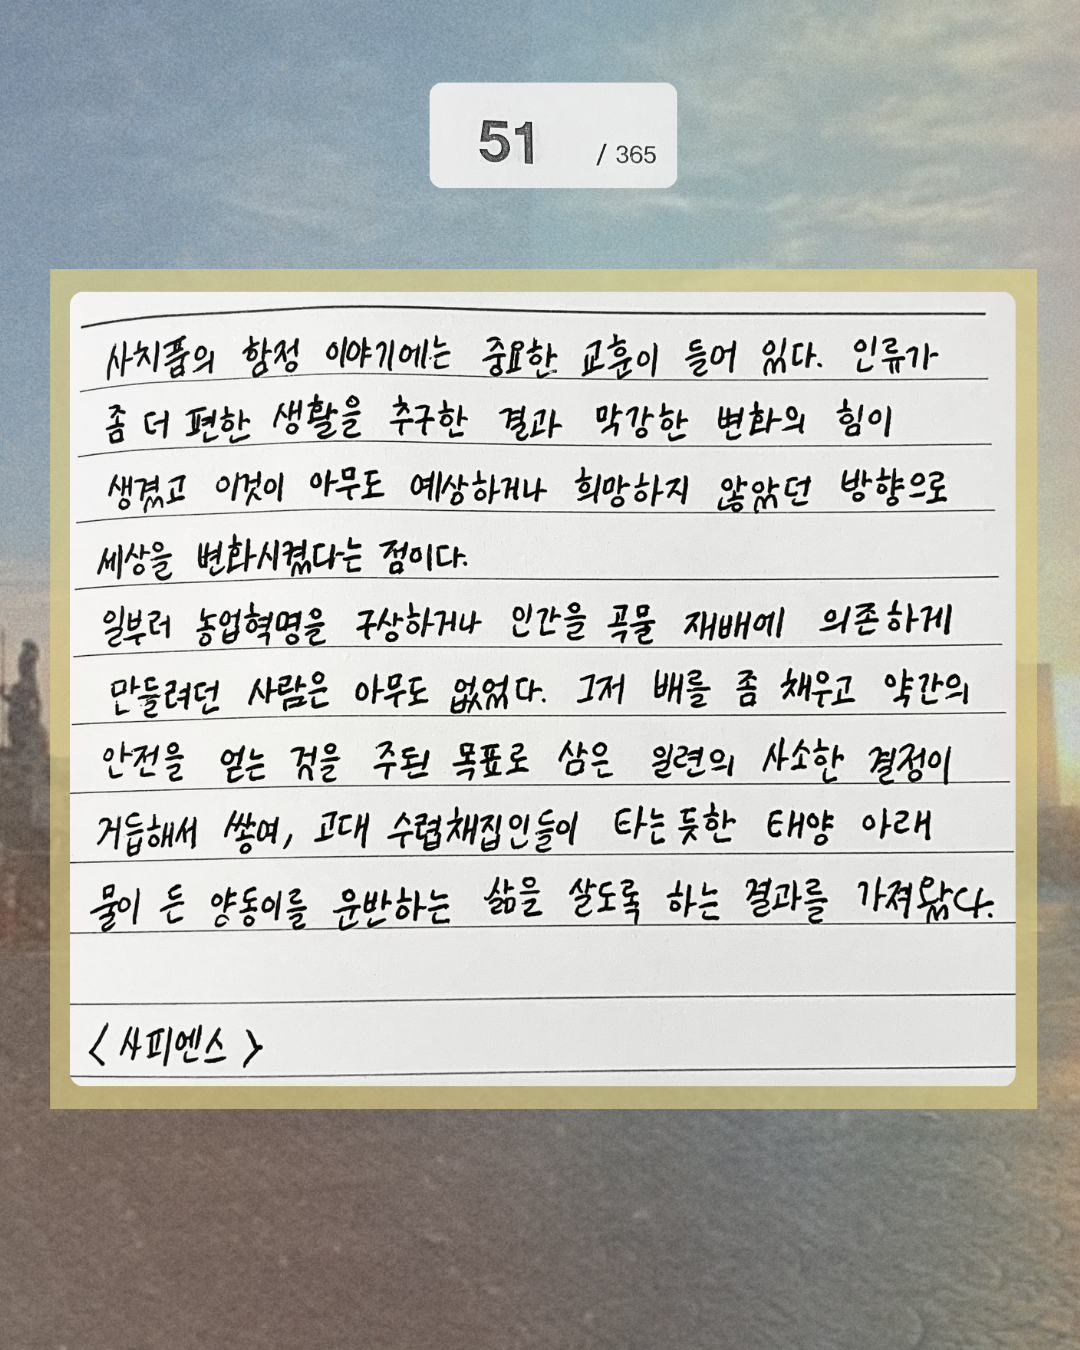 51 / 365
사치품의 함정 이야기에는 중요한 교훈이 들어 있다. 인류가
좀 더 편한 생활을 추구한 결과 막강한 변화의 힘이
생겼고 이것이 아무도 예상하거나 희망하지 않았던 방향으로
세상을 변화시켰다는 점이다.
일부러 농업혁명을 구상하거나 인간을 곡물 재배에 의존하게
만들려던 사람은 아무도 없었다. 그저 배를 좀 채우고 약간의
안전을 얻는 것을 주된 목표로 삼은 일련의 사소한 결정이
거듭해서 쌓여, 고대 수렵채집인들이 타는 듯한 태양 아래
물이 든 양동이를 운반하는 삶을 살도록 하는 결과를 가져왔다.
< 사피엔스 >